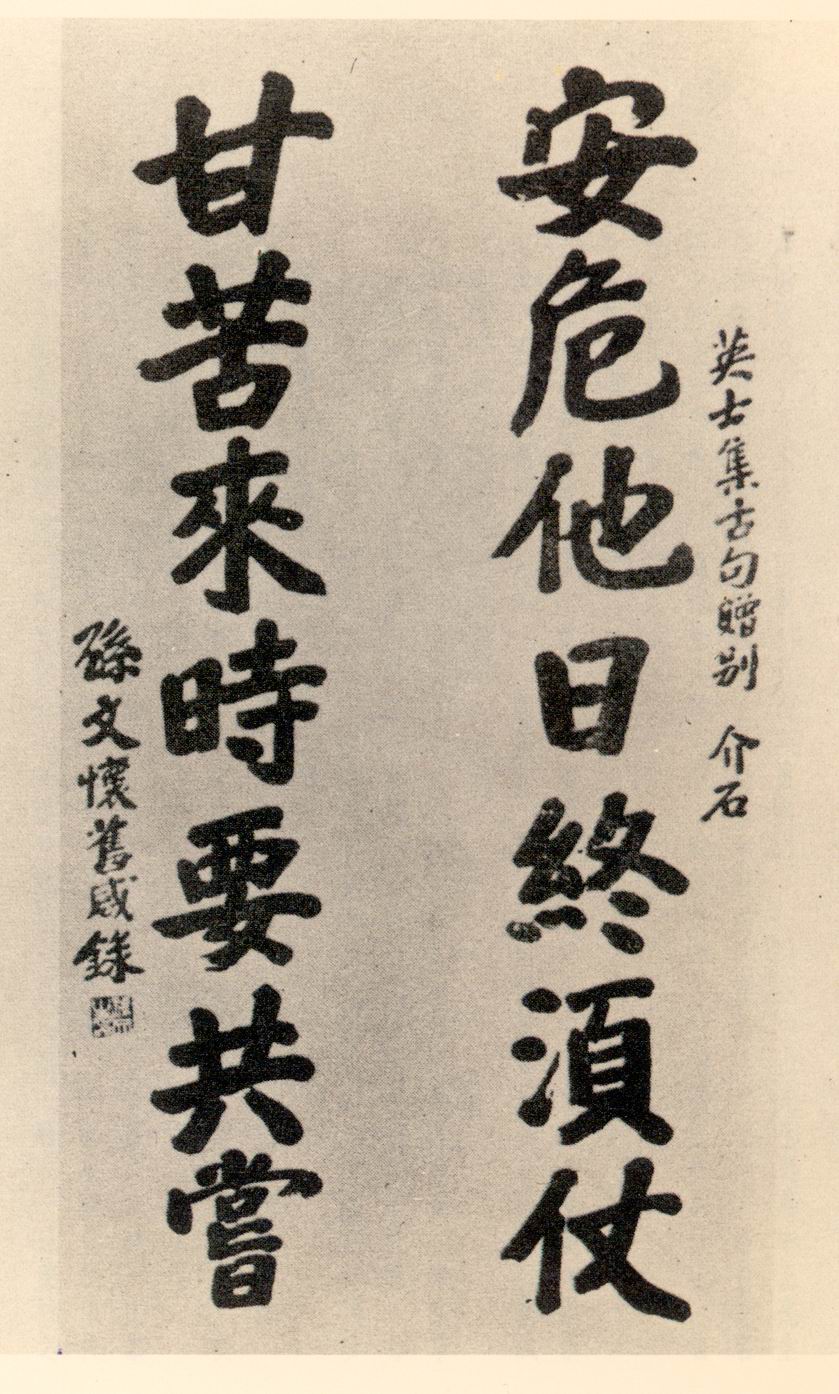 英士集古句贈別 介石
安危他日終湏仗
甘苦來時要共嘗
孫文懷舊感錄